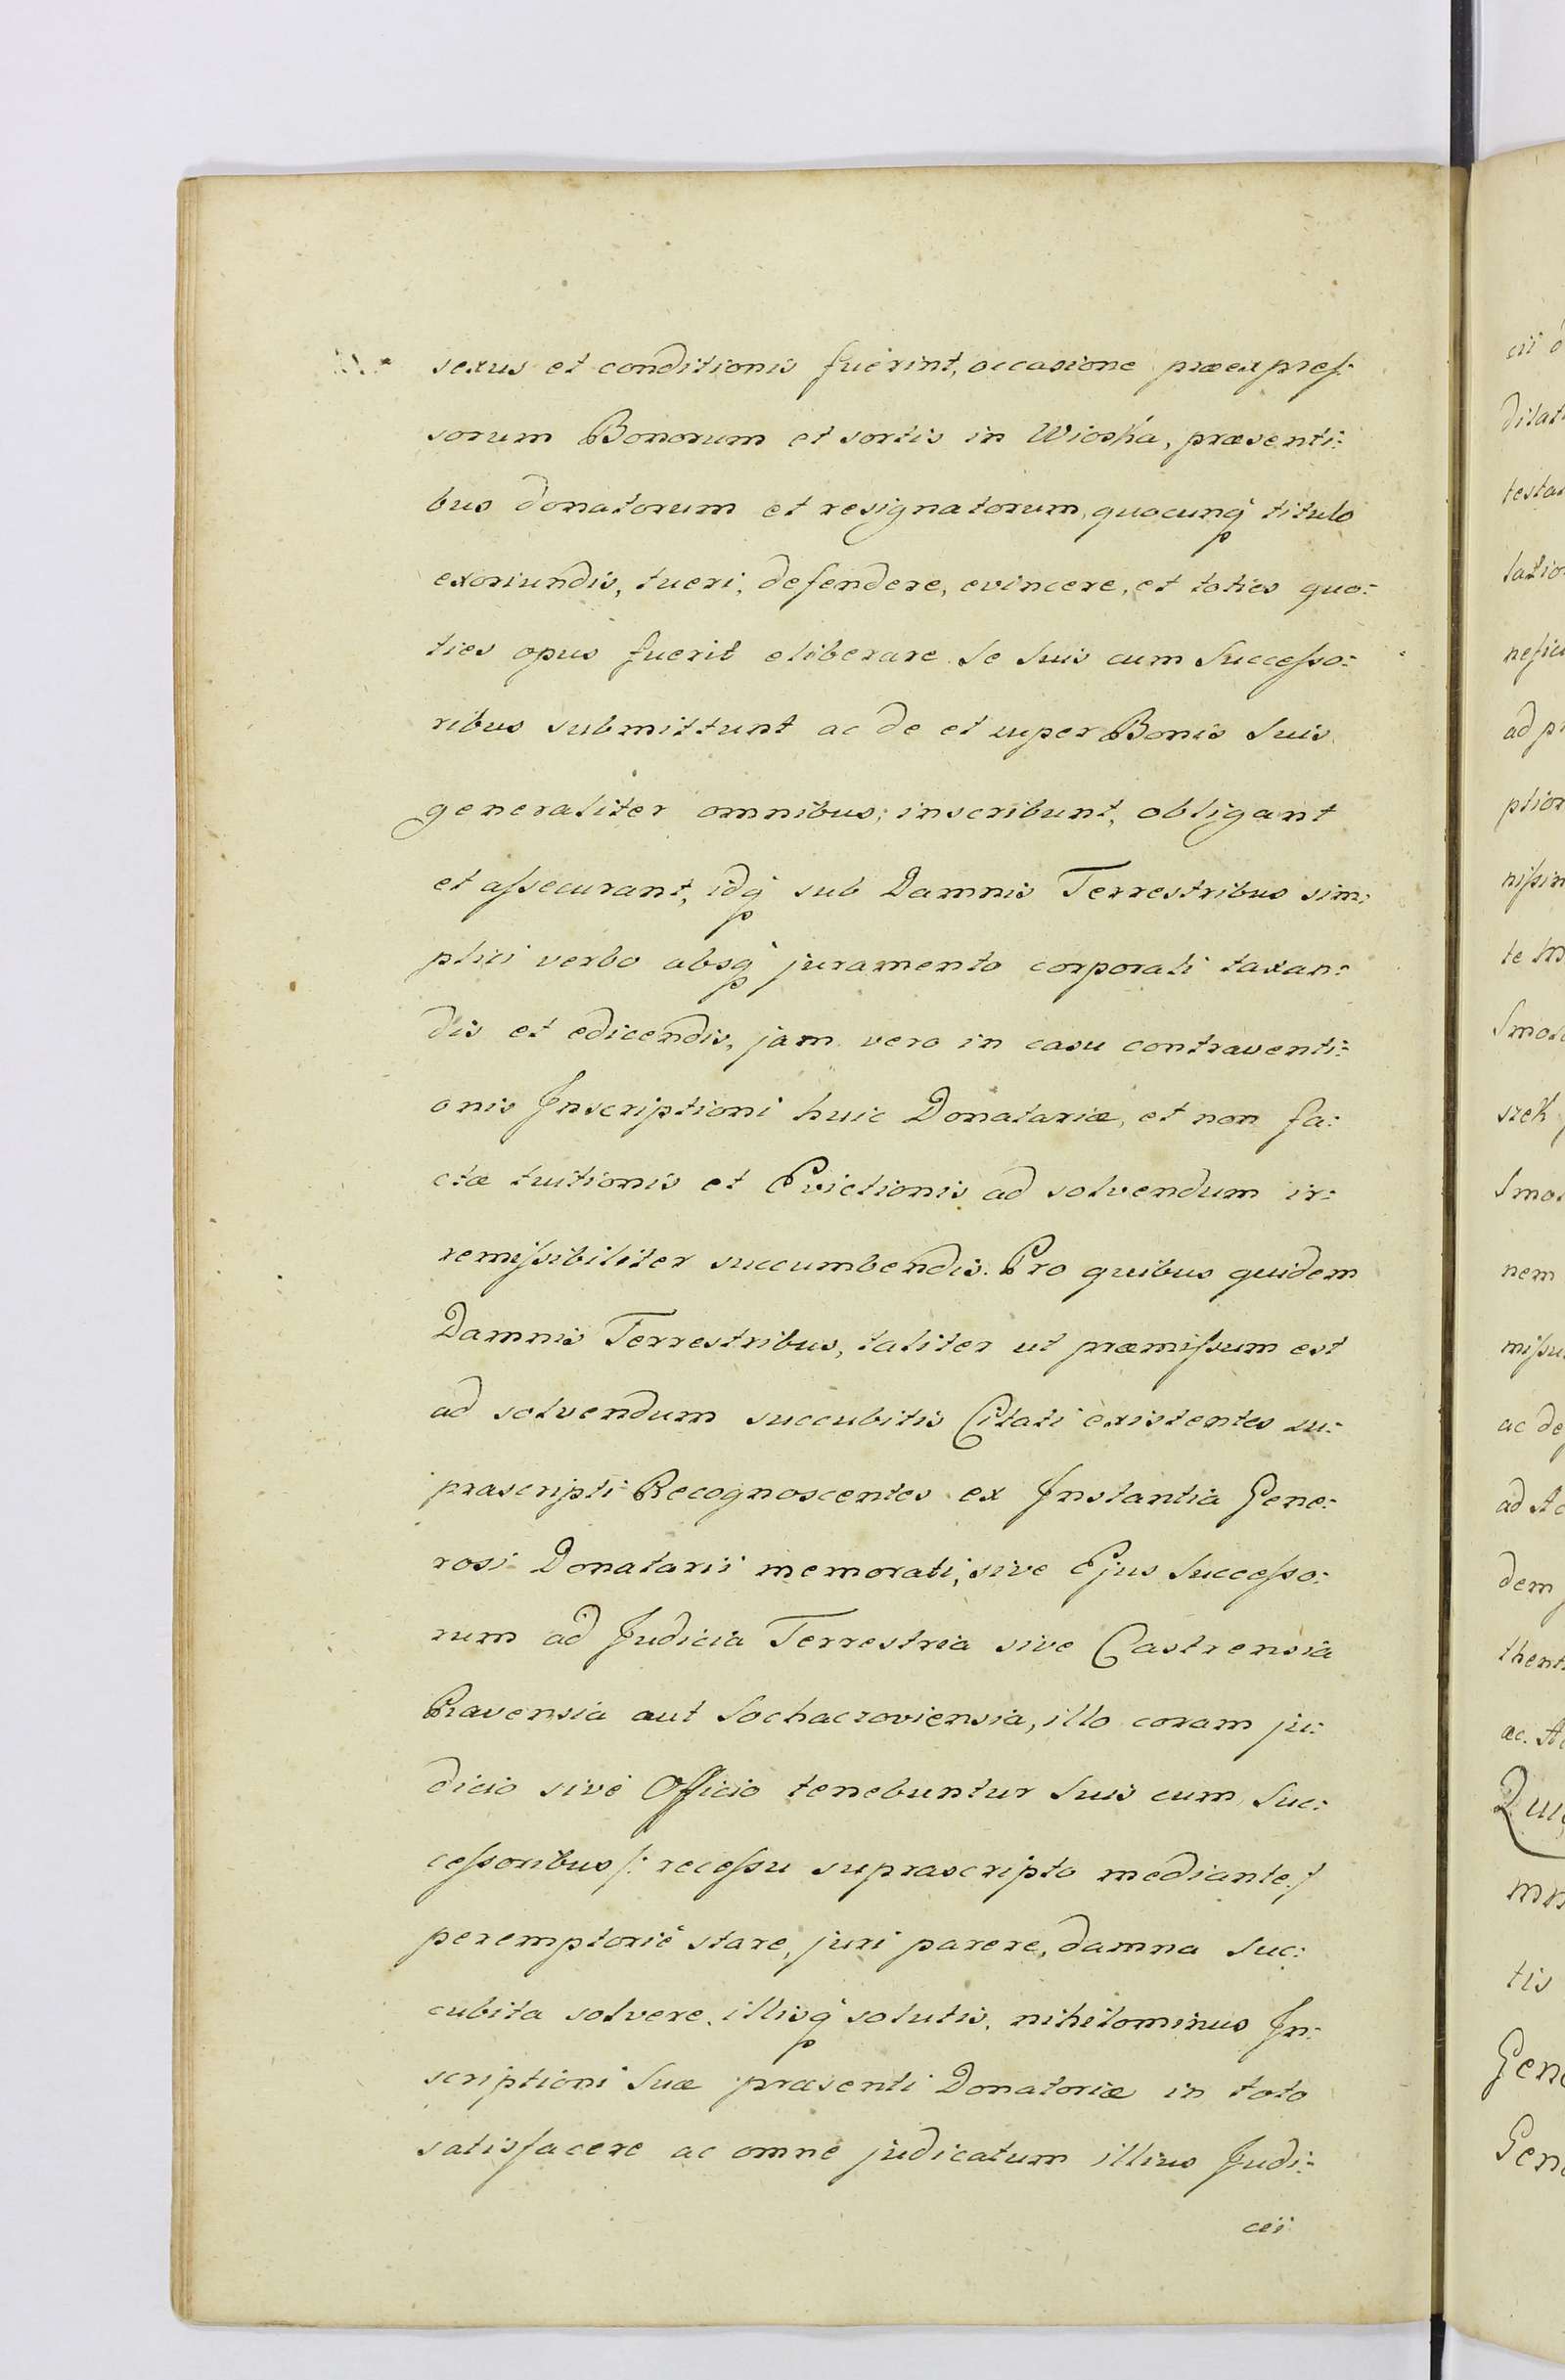 sexus et conditionis fuerint, occasione præexpreſ:
sorum Bonorum et sortis in Wioska, præsenti:
bus donatorum et resignatorum, quocunq titulo
exoriundis, tueri, defendere, evincere, et toties quo:
ties opus fuerit eliberare Se Suis cum Succeſso:
ribus submittunt ac de et super Bonis Suis
generaliter omnibus, inscribunt, obligant
et aſsecurant, idq sub Damnis Terrestribus sim:
plici verbo absq juramento corporali taxan:
dis et edicendis, jam vero in casu contraventi:
onis Inscriptioni huic Donatariæ, et non fa:
ctæ tuitionis et Evictionis ad solvendum ir:
remiſsibiliter succumbendis. Pro quibus quidem
Damnis Terrestribus, taliter ut præmiſsum est
ad solvendum succubitis Citati existentes su:
prascripti Recognoscentes ex Instantia Gene:
rosi Donatarii memorati, sive Ejus Succeſso:
rum ad Judicia Terrestria sive Castrensia
Ravensia aut Sochaczoviensia, illo coram ju:
dicio sive Officio tenebuntur Suis cum Suc:
ceſsoribus /: receſsu suprascripto mediante :/
peremptorie stare, juri parere, damna Suc:
cubita solvere, illisq solutis, nihilominus In:
scriptioni Suæ præsenti Donatoriæ in toto
satisfacere ac omne judicatum illius Judi:
cii
cii
testa
tatio
nefici
ad pr
ption
niſsim
te
szek
nem
miſsu
ac de
ad Ac
dem
thent
ac. Ac
tis
Gene
Gene